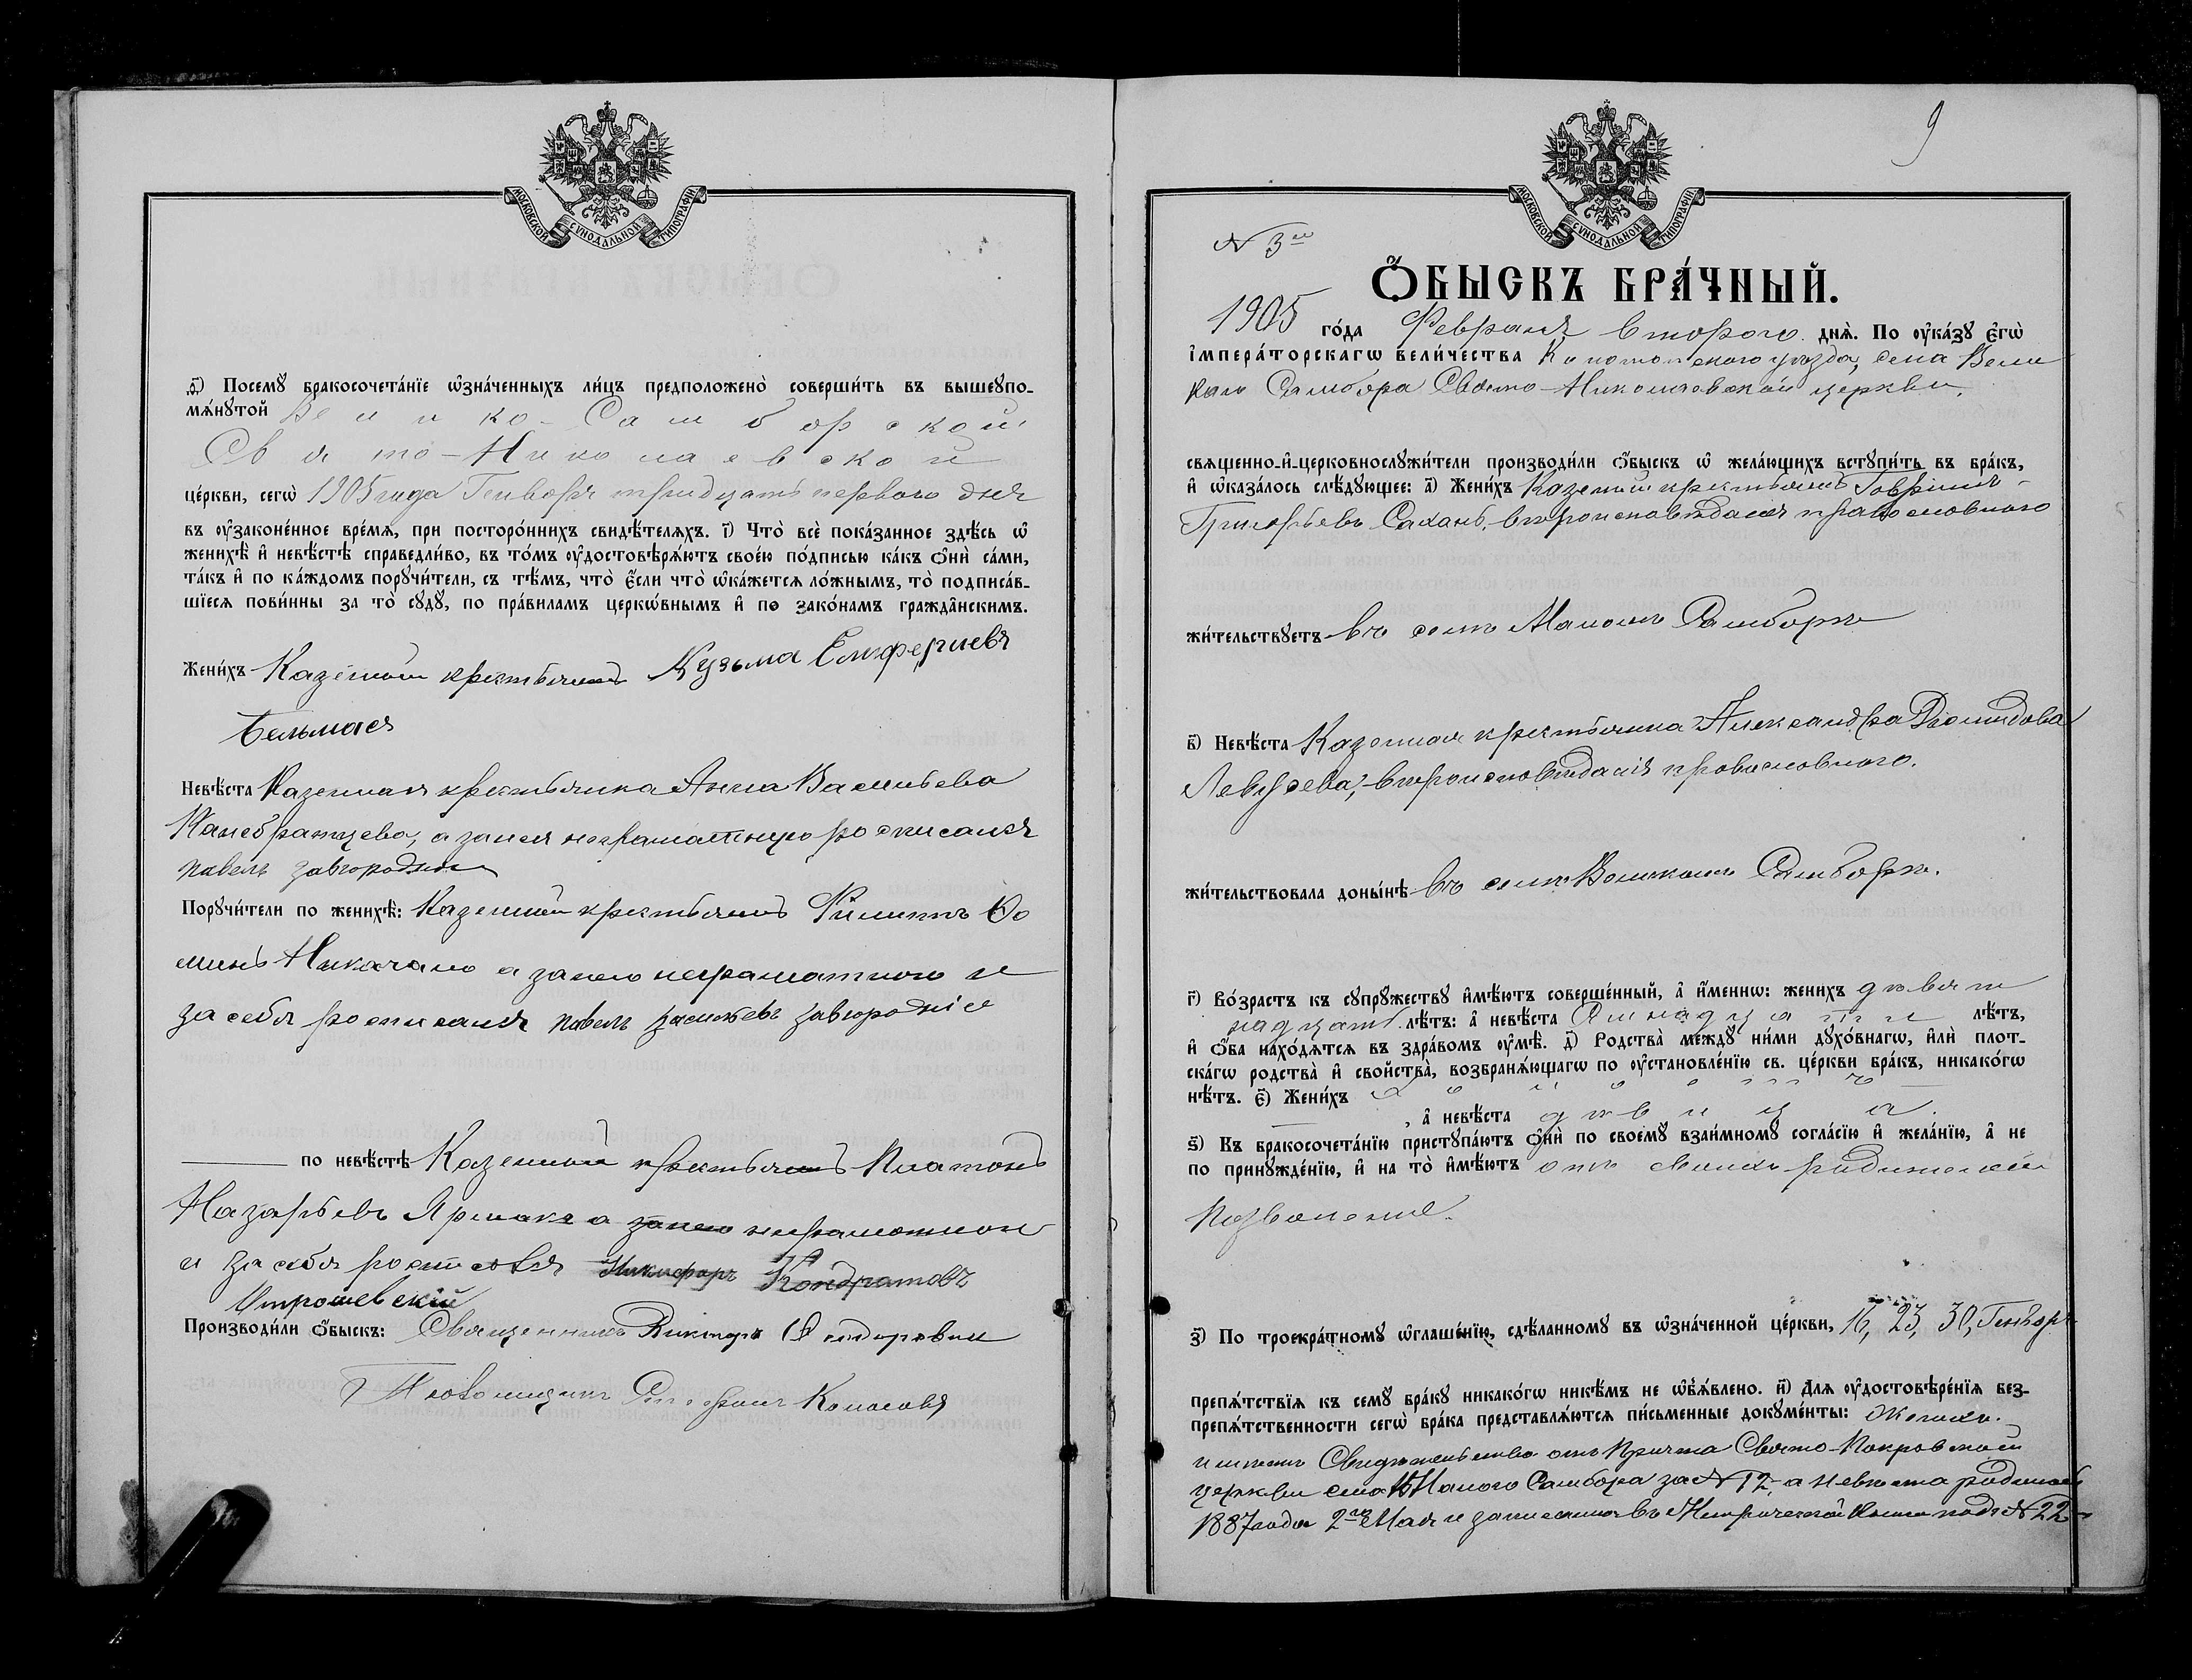 МОСКОВСКОЙ СѴНОДАЛЬНОЙ ТИПОГРАФІИ
ѳ҃) Посемꙋ̀ бракосочета́нїе ѡ҆зна́ченныхъ ли́цъ предположено̀ соверши́ть въ вышеꙋпо-
мѧ́нꙋтой Велико-Самборской
Свято-Николаевской
це́ркви, сегѡ̀ 1905 года Генваря тридцать первого дня
въ ᲂу҆законе́нное вре́мѧ, при посторо́ннихъ свидѣ́телѧхъ. і҃) Что̀ всѐ пока́занное здѣ́сь ѡ҆
женихѣ̀ и҆ невѣ́стѣ справедли́во, въ то́мъ ᲂу҆достовѣрѧ́ютъ свое́ю по́дписью ка́къ ѻ҆нѝ са́ми,
та́къ и҆ по ка́ждомъ порꙋчи́тели, съ тѣ́мъ, что̀ є҆́сли что̀ ѡ҆ка́жетсѧ ло́жнымъ, то̀ подписа́в-
шїесѧ пови́нны за то̀ сꙋдꙋ̀, по пра́виламъ церкѡ́внымъ и҆ по зако́намъ гражда̑нскимъ.
Жени́хъ Казенный крестьянинъ Кузьма Елиферіевъ
Бельмася
Невѣ́ста Казенная крестьянка Анна Васильева
Канебратцева, а за нея неграматную росписался
павелъ завгородни
Порꙋчи́тели по женихѣ̀: Казенный крестьянинъ Филиппъ Фо
минъ а за него неграматного и
за себя росписался павелъ завгородніо
по невѣ́стѣ Казенный крестьянинъ Платонъ
Назарьевъ а за него неграмотного
и за себя Никифоръ Кондратовъ
Производи́ли ѻ҆́быскъ: Священникъ Викторъ
Псаломщикъ Стефанъ
9
МОСКОВСКОЙ СѴНОДАЛЬНОЙ ТИПОГРАФІИ
№ 3й
Ѻ҆́БЫСКЪ БРА́ЧНЫЙ.
1905 го́да Февраля второго днѧ̀. По ᲂу҆ка́зꙋ є҆гѡ̀
і҆мпера́торскагѡ вели́чества Конотопского уѣзда, села Вели
каго Самбора Свято-Николаевской церкви,
свѧщенно-и҆-церковнослꙋжи́тели производи́ли ѻ҆́быскъ ѡ҆ жела́ющихъ встꙋпи́ть въ бра́къ,
и҆ ѡ҆каза́лось слѣ́дꙋющее: а҃) Жени́хъ Казенный крестьянинъ Гавріилъ
Григорьевъ Сахань, вѣроисповѣданія православного
жи́тельствꙋетъ въ селѣ Маломъ Самборѣ
в҃) Невѣ́ста Казенная крестьянка Александра Діомидова
Левусева, вѣроисповѣданія православного.
жи́тельствовала доны́нѣ въ селѣ Великомъ Самборѣ.
г҃) Во́зрастъ къ сꙋпрꙋ́жествꙋ и҆мѣ́ютъ соверше́нный, а҆ и҆́меннѡ: женихъ девят
надцать лѣ́тъ: а҆ невѣ́ста лѣ́тъ,
и҆ ѻ҆́ба нахо́дѧтсѧ въ здра́вомъ ᲂу҆мѣ̀. д҃) Родства̀ междꙋ̀ ни́ми дꙋхо́внагѡ, и҆лѝ плот-
ска́гѡ родства̀ и҆ свойства̀, возбранѧ́ющагѡ по ᲂу҆становле́нїю св. це́ркви бра́къ, никако́гѡ
нѣ́тъ. є҃) Жени́хъ холостъ
, а҆ невѣ́ста дѣвица.
ѕ҃) Къ бракосочета́нїю пристꙋпа́ютъ ѻ҆нѝ по своемꙋ̀ взаи́мномꙋ согла́сїю и҆ жела́нїю, а҆ не
по принꙋжде́нїю, и҆ на то̀ и҆мѣ́ютъ отъ своихъ родителей
позволеніе.
з҃) По троекра́тномꙋ ѡ҆глаше́нїю, сдѣ́ланномꙋ въ ѡ҆зна́ченной це́ркви, 16, 23, 30, Генваря
препѧ́тствїѧ къ семꙋ̀ бра́кꙋ никако́гѡ никѣ́мъ не ѡ҆б̾ѧ́влено. и҃) Для ᲂу҆достовѣре́нїѧ без-
препѧ́тственности сегѡ̀ бра́ка представлѧ́ютсѧ пи́сьменные докꙋме́нты: Женихъ
имѣетъ Свидѣтельство отъ Причта Свято-Покровской
церкви села Малого Самбора за № 12, а невѣста родилась
1887 года 2го Мая и записана въ Метрической Книги подъ № 22